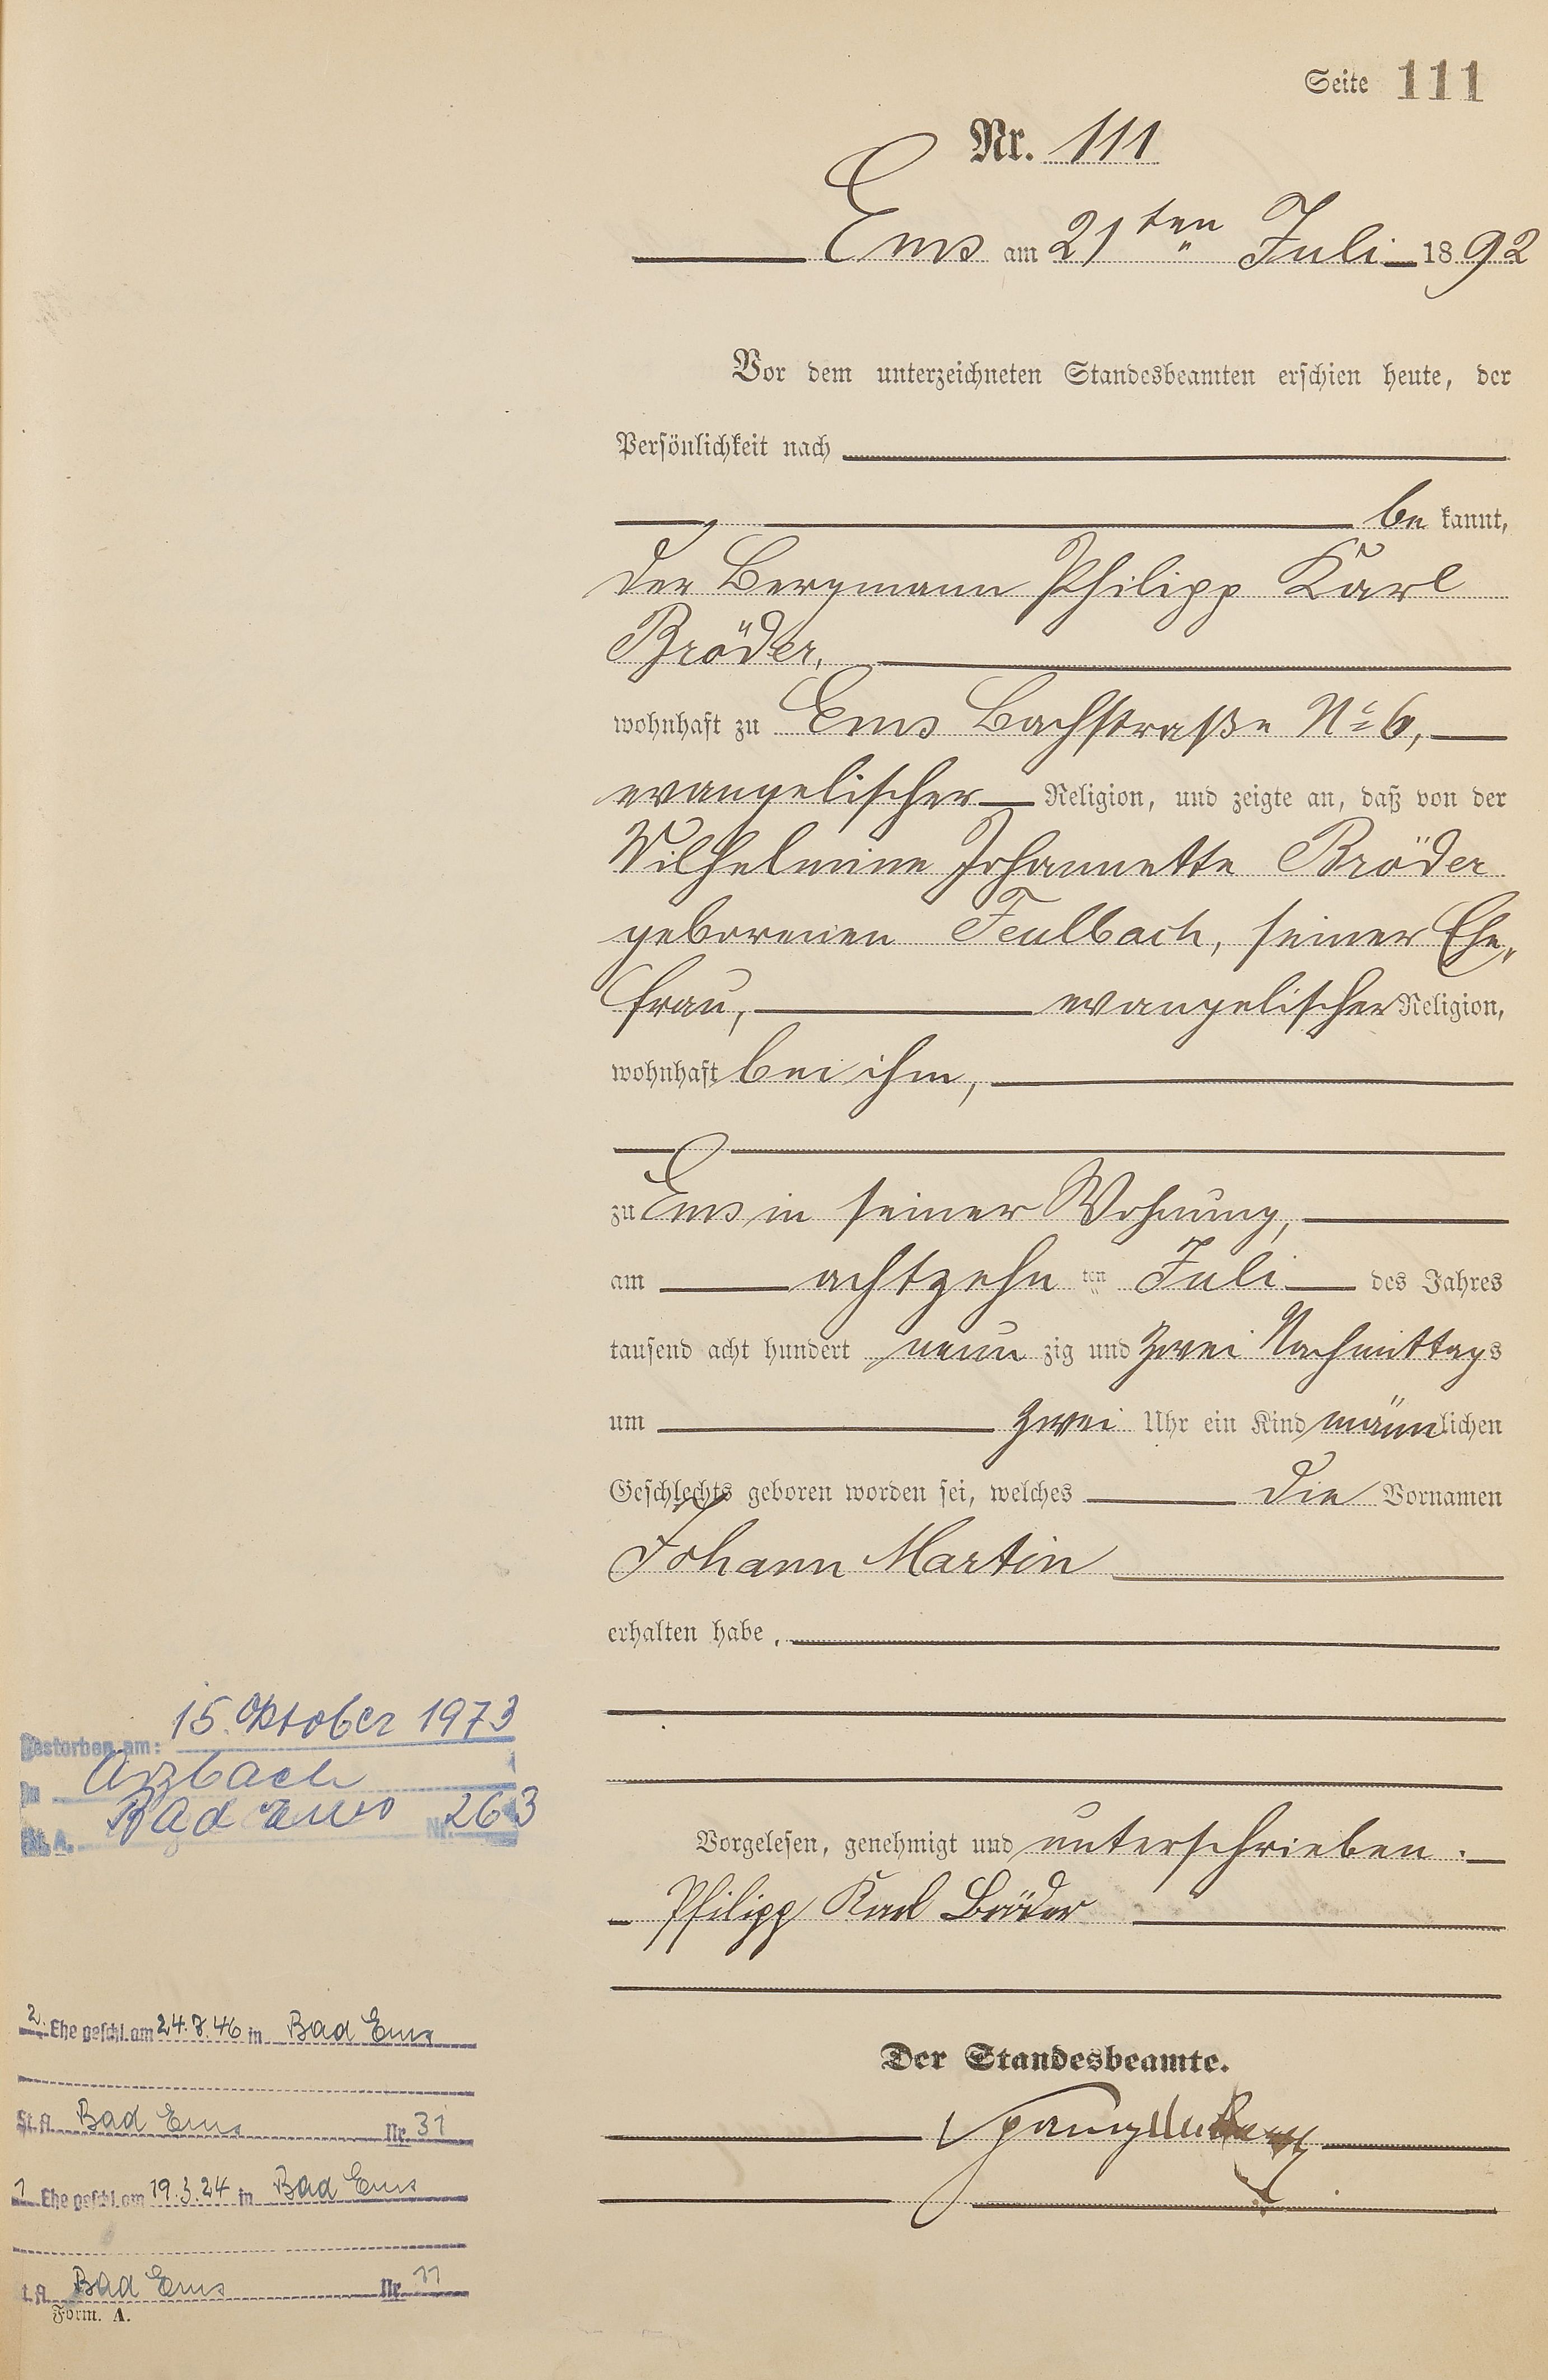 Seite 111
Nr. 111
Ems am 21ten Juli 1892
Vor dem unterzeichneten Standesbeamten erschien heute, der
Persönlichkeit nach
bekannt,
der Bergmann Philipp Karl
Bröder,
wohnhaft zu Ems Bachstraße No 6,
evangelischer Religion, und zeigte an, daß von der
Wilhelmine Johannette Bröder
geborenen Faulbach, seiner Ehe„
frau, evangelischer Religion,
wohnhaft bei ihm,
zu Ems in seiner Wohnung,
am achtzehn ten Juli des Jahres
tausend acht hundert neun zig und zwei Nachmittags
um zwei Uhr ein Kind männlichen
Geschlechts geboren worden sei, welches die Vornamen
Johann Martin
erhalten habe.
Vorgelesen, genehmigt und unterschrieben.
Philipp Karl Bröder
Der Standesbeamte.
Gestorben am: 15. Oktober 1973
in Arzbach
St. A. Bad Ems Nr. 263
2. Ehe geschl. am 24.8.46 in Bad Ems
St. A. Bad Ems Nr. 31
1. Ehe geschl. am 19.3.24 in Bad Ems
St. A. Bad Ems Nr. 11
Form. A.